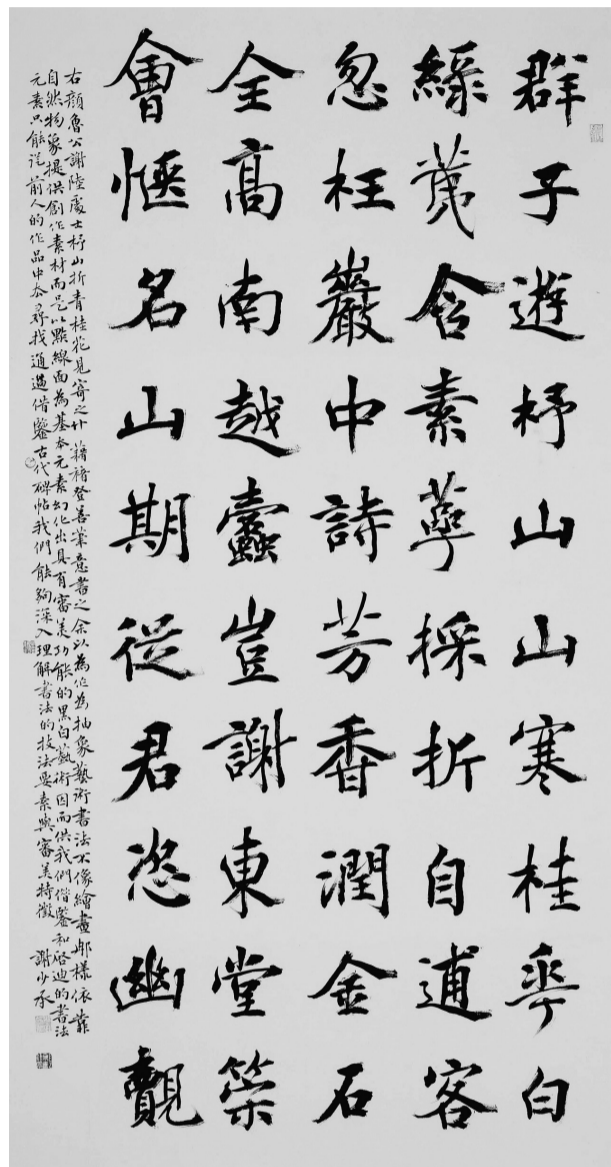 群子遊杼山山寒桂華白
綠荑含素萼採折自逋客
忽枉巖中詩芳香潤金石
全高南越蠹豈謝東堂策
會愜名山期從君恣幽覿
右顏魯公謝陸處士杼山折青桂花見寄之什藉褚登善筆意書之余以為作為抽象藝術書法不像繪畫那樣依靠
自然物象提供創作素材而是以點線面為基本元素幻化出具有審美功能的黑白藝術因而供我們借鑒和启迪的書法
元素只能從前人的作品中去尋找通過借鑒古代碑帖我們能夠深入理解書法的技法要素與審美特徵 謝少承